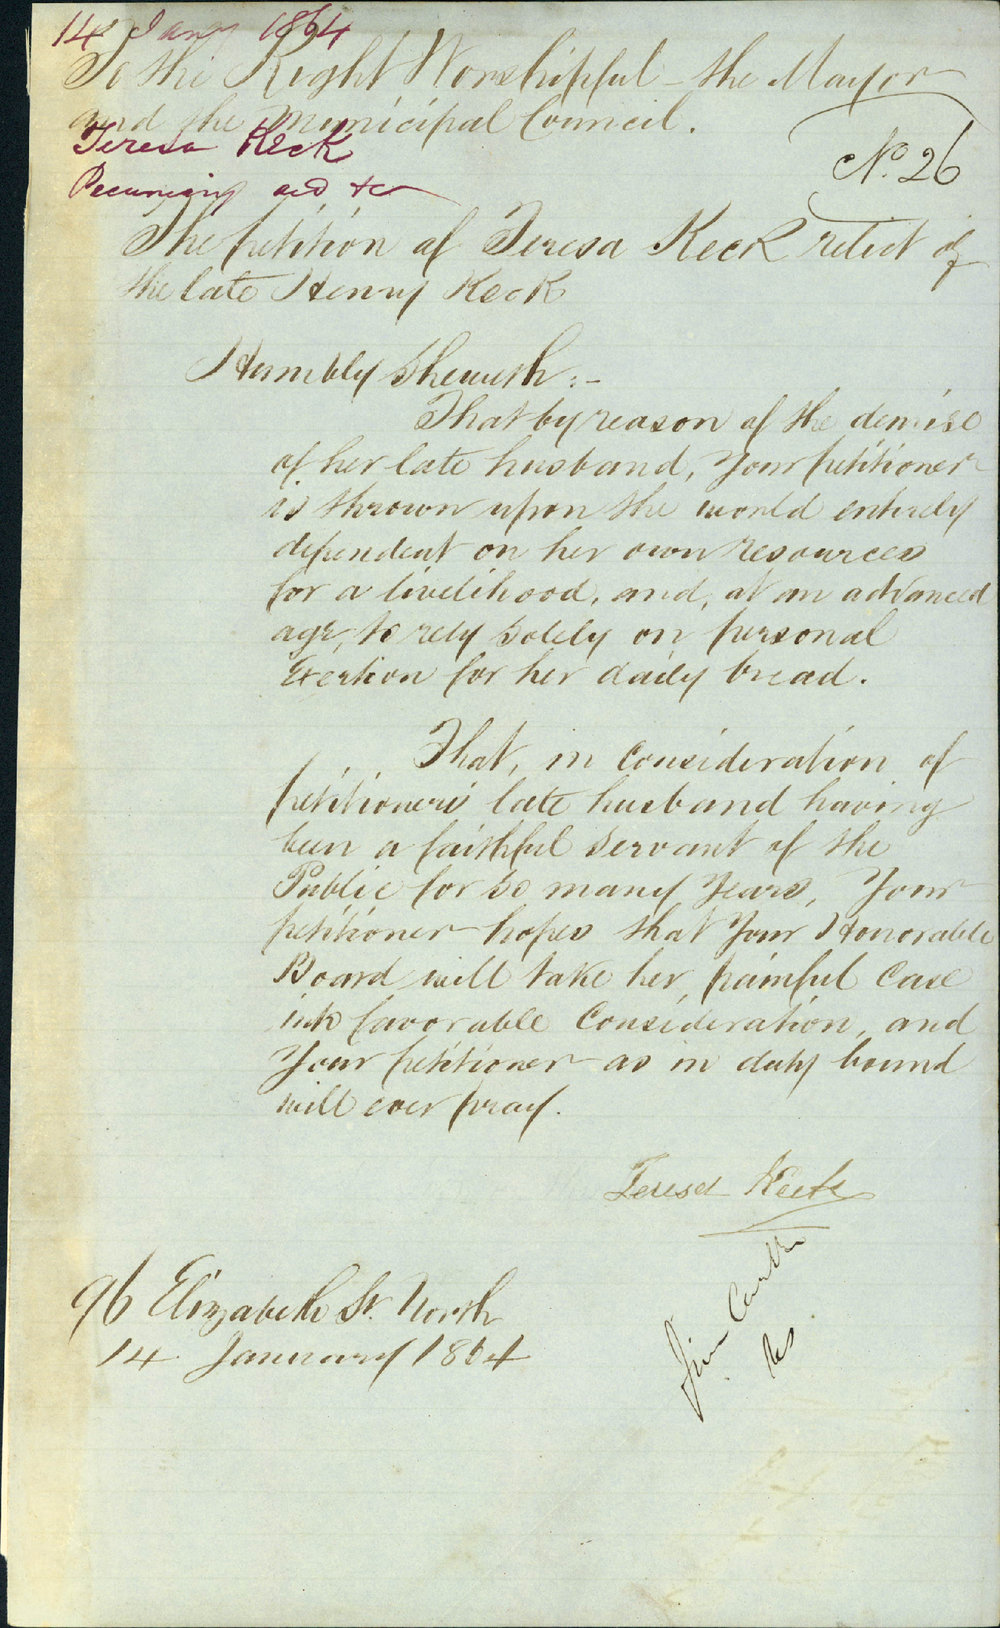 14 Jany 1864
To the Right Worshipful the Mayor
and the Municipal Council.
Teresa Keck
Pecuniary aid &c
No. 26
The petition of Teresa Keck relict of
the late Henry Keck
Humbly Sheweth :-
That by reason of the demise
of her late husband, Your petitioner
is thrown upon the world entirely
dependent on her own resources
for a livelihood, and, at an advanced
age, to rely solely on personal
Exertion for her daily bread.
That, in Consideration of
petitioner's late husband having
been a faithful servant of the
Public for so many Years, Your
petitioner hopes that Your Honorable
Board will take her painful Case
into favorable Consideration, and
Your petitioner as in duty bound
will ever pray.
Teresa Keck
96 Elizabeth St. North
14 January 1864